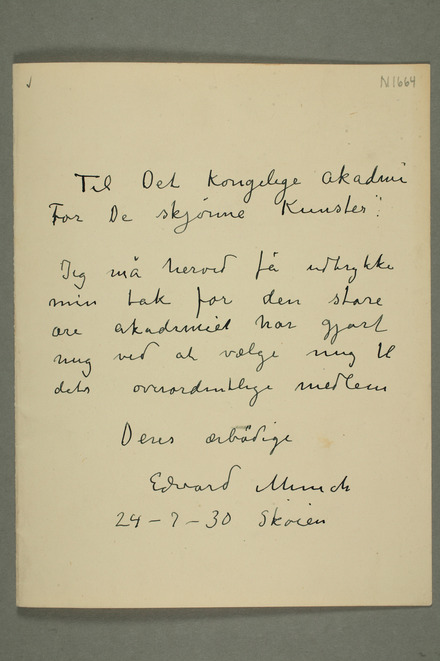 N1664
Til Det kongelige akadmi
For De skjønne Kunster":
Jeg må herved få udtrykke
min tak for den store
ære akadmiet har gjort
mig ved at vælge mig til
dets overordentlige medlem
Deres ærbødige
Edvard Munch
24-7-30 Skøien